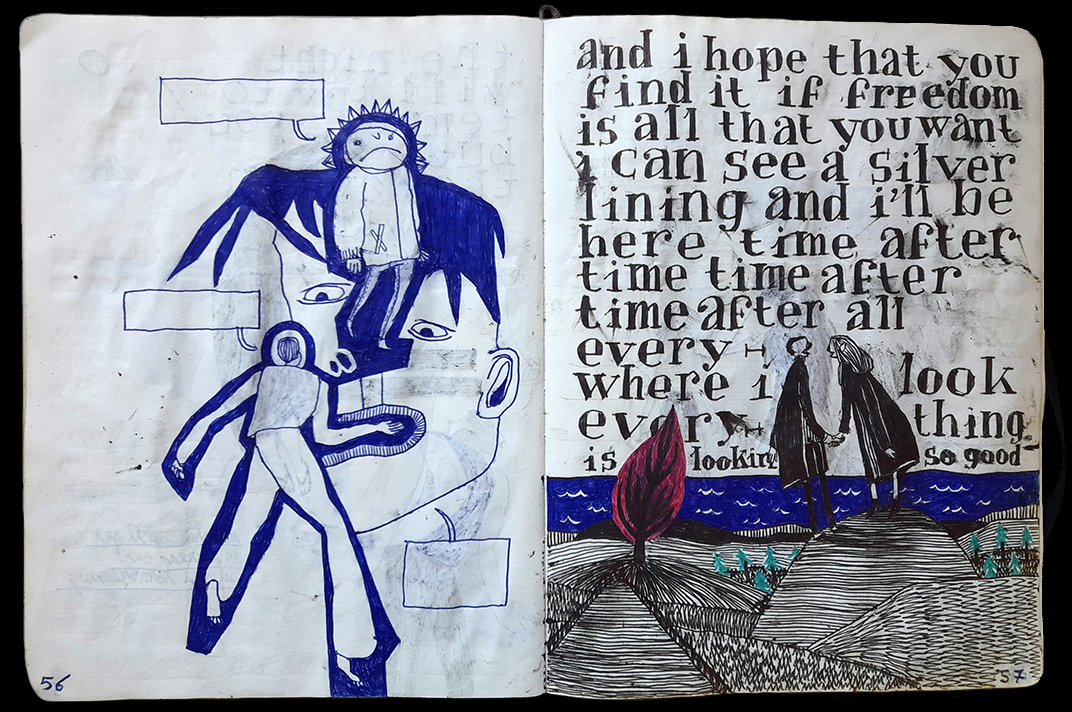 and i hope that you
find it if freedom
is all that you want
i can see a silver
lining and i'll be
here time after
time time after
time after all
every
where i look
every thing
is looking so good
56
57